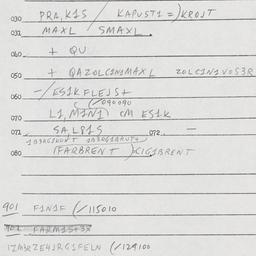 030 PRA,K1S / KAPUST1=)KROJT
031 MAXL SMAXL.
040 + QU
050 + QAZOLC1N1MAXL ZOLC1N1VOS3R
060 -/ES1KFLEJS+
(/090090
070 L1,M1N1) CM ES1K
071 SA,L81S 072 -
080 (FARBRENT)C1G1BRENT
901 F1N1F (/115010
902 FARM1S+3X
(/129100